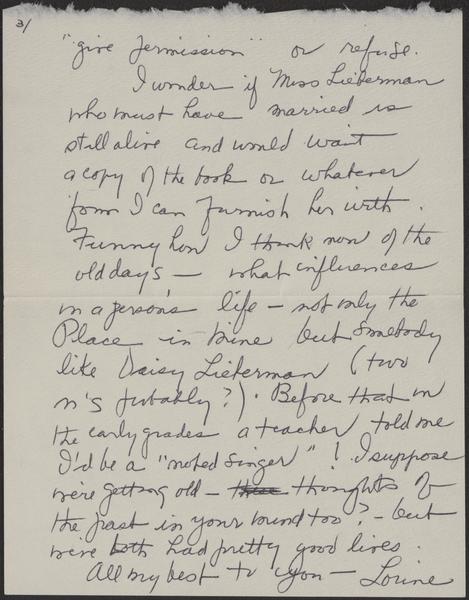 3/
"give permission" or refuse.
I wonder if Miss Lieberman
who must have married is
still alive and would want
a copy of the book or whatever
form I can furnish her with.
Funny how I think now of the
old days — what influences
in a person's life — not only the
Place in mine but somebody
like Daisy Lieberman (two
n's probably?). Before that in
the early grades a teacher told me
I'd be a "noted singer"! I suppose
we're getting old — these thoughts of
the past in your mind too? — but
we've both had pretty good lives.
All my best to you — Lorine